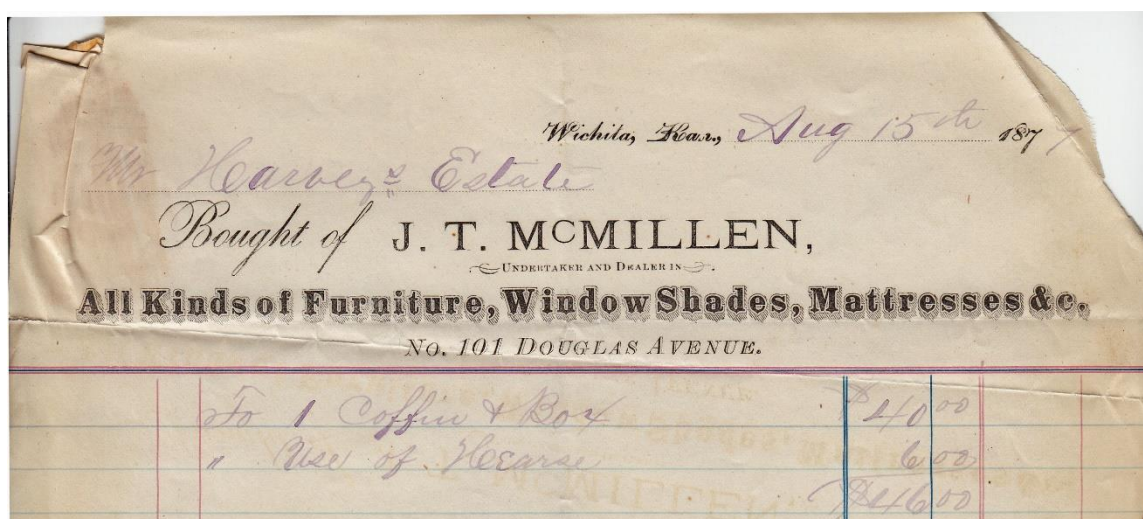 Wichita, Kas., Aug 15th 1877
Mr Harvey's Estate
Bought of J. T. McMILLEN,
UNDERTAKER AND DEALER IN
All Kinds of Furniture, Window Shades, Mattresses &c.
No. 101 DOUGLAS AVENUE.
To 1 Coffin & Box $40 00
" Use of Hearse 6 00
$46 00